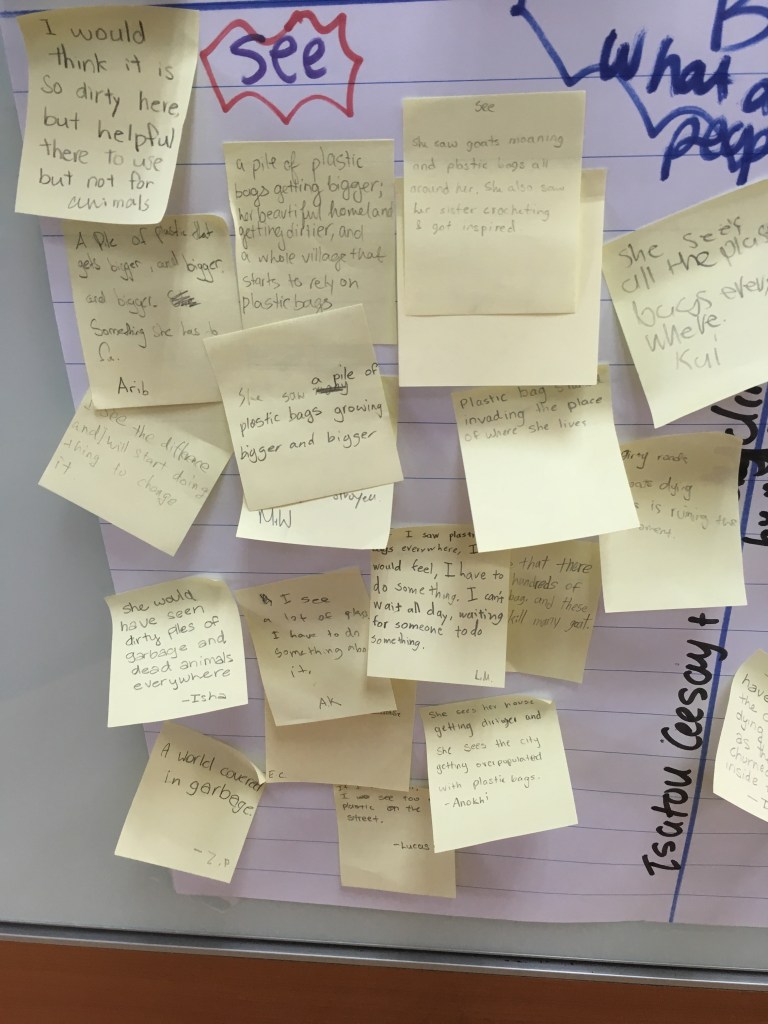 I would
think it is
so dirty here,
but helpful
there to use
but not for
animals
see
What a
peop
a pile of plastic
bags getting bigger;
her beautiful homeland
getting dirtier, and
a whole village that
starts to rely on
plastic bags
See
She saw goats moaning
and plastic bags all
around her. She also saw
her sister crocheting
& got inspired
She sees
all the plas
bags every
where.
Kul
A Pile of Plastic that
gets bigger, and bigger,
and bigger.
Something she has to
Arib
She saw a pile of
plastic bags growing
bigger and bigger
MW
Plastic bag
invading the place
of where she lives
see the difference
and I will start doing
thing to change
it.
dying
is ruining the
I saw plastic
everywhere, I
would feel, I have to
do something. I can't
wait all day, waiting
for someone to do
something.
L.M.
that there
hundreds of
bag and these
kill many goat
She would
have seen
dirty piles of
garbage and
dead animals
everywhere
-Isha
I see
a lot of
I have to do
something abo
it.
AK
E.C
She sees her house
getting dirtier and
she sees the city
getting overpopulated
with plastic bags.
-Anokhi
A world covered
in garbage.
- Z.P
I see too
plastic on the
street.
-Lucas
Isatou Ceesay +
have
the
dying
as the
churned
inside